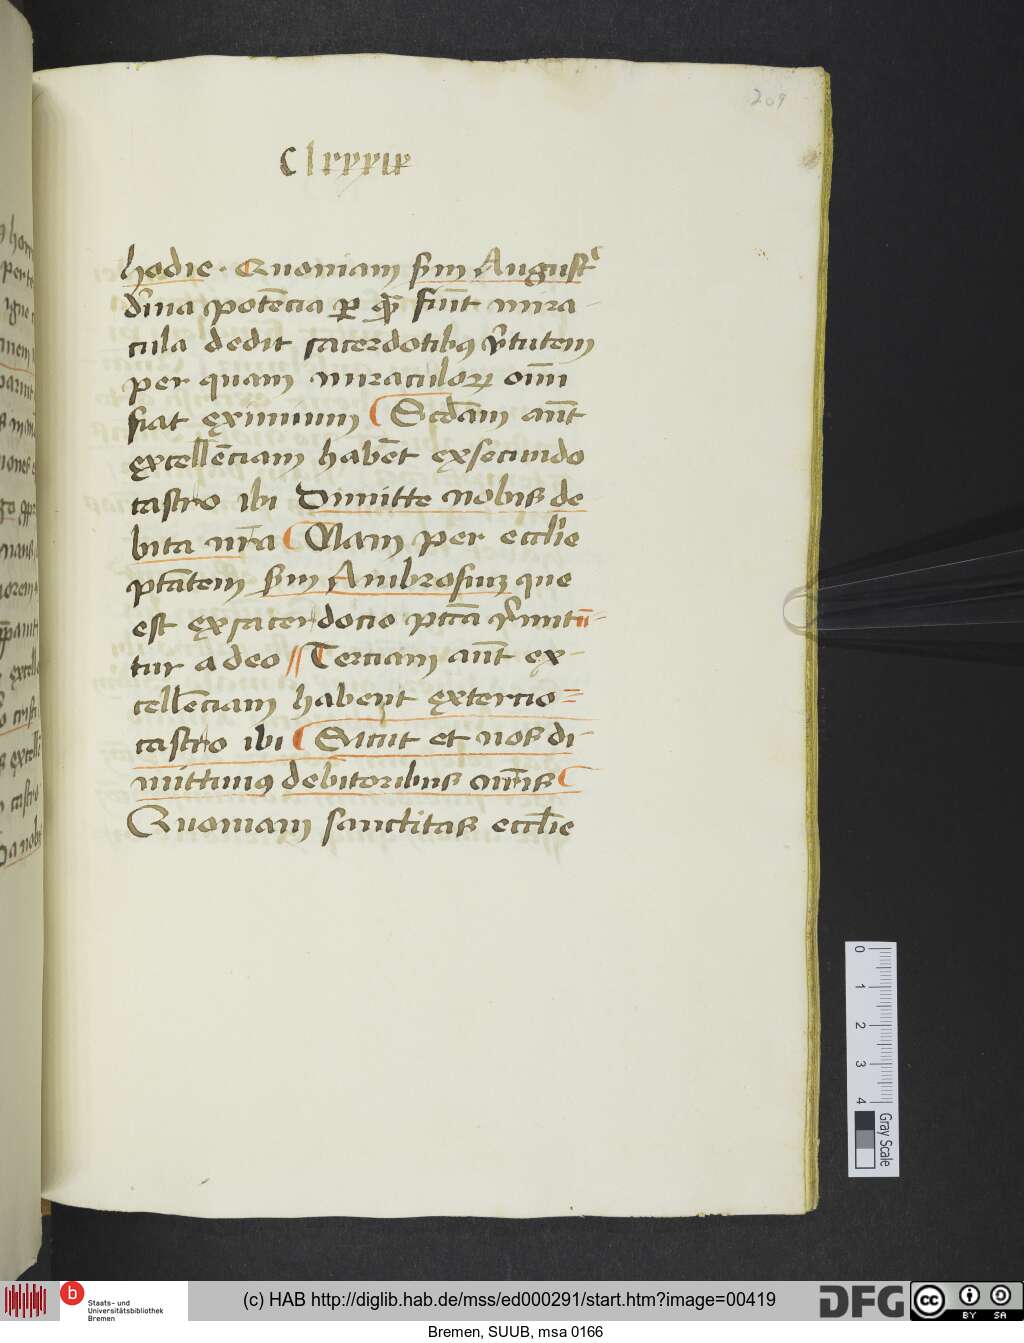 209
Clxxxix
hodie. Quoniam scdm Augustī
dīna potēcia per quā fiūt mira-
cula dedit sacerdotibus virtutem
per quam miraculorum oīm
fiat eximium Scdam aūt
excellēciam habēt ex secundo
castro ibi Dimitte nobis de
bita nra Nam per ecclīe
ptātem scdm Ambrosium que
est ex sacerdocio pctā
tur a deo Terciam aūt ex-
cellēciam habent ex tercio
castro ibi Sicut et nos di-
mittimus debitoribus nris
Quoniam sanctitas ecclīe
0 1 2 3 4
Gray Scale
b Staats- und
Universitätsbibliothek
Bremen
(c) HAB http://diglib.hab.de/mss/ed000291/start.htm?image=00419
DFG
cc BY SA
Bremen, SUUB, msa 0166